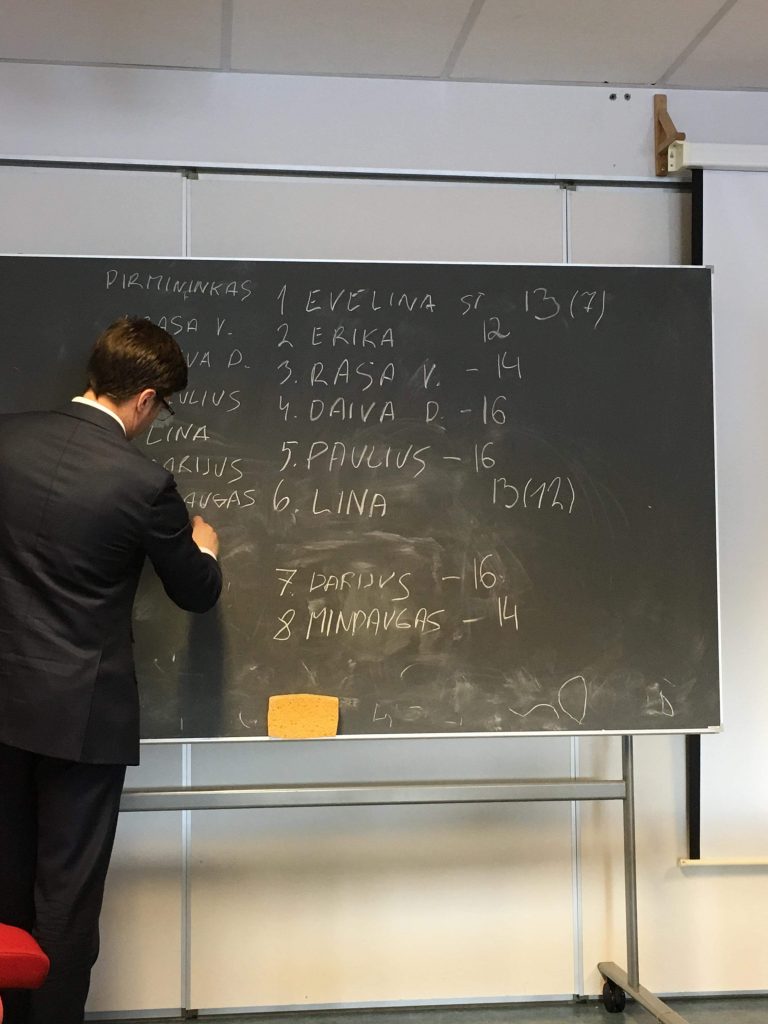 PIRMININKAS
ASA V.
VA D.
ULIUS
LINA
ARIJUS
AUGAS
1 EVELINA ST 13(7)
2 ERIKA 12
3. RASA V. - 14
4. DAIVA D. - 16
5. PAULIUS - 16
6. LINA 13(12)
7. DARIJUS - 16
8 MINDAUGAS - 14